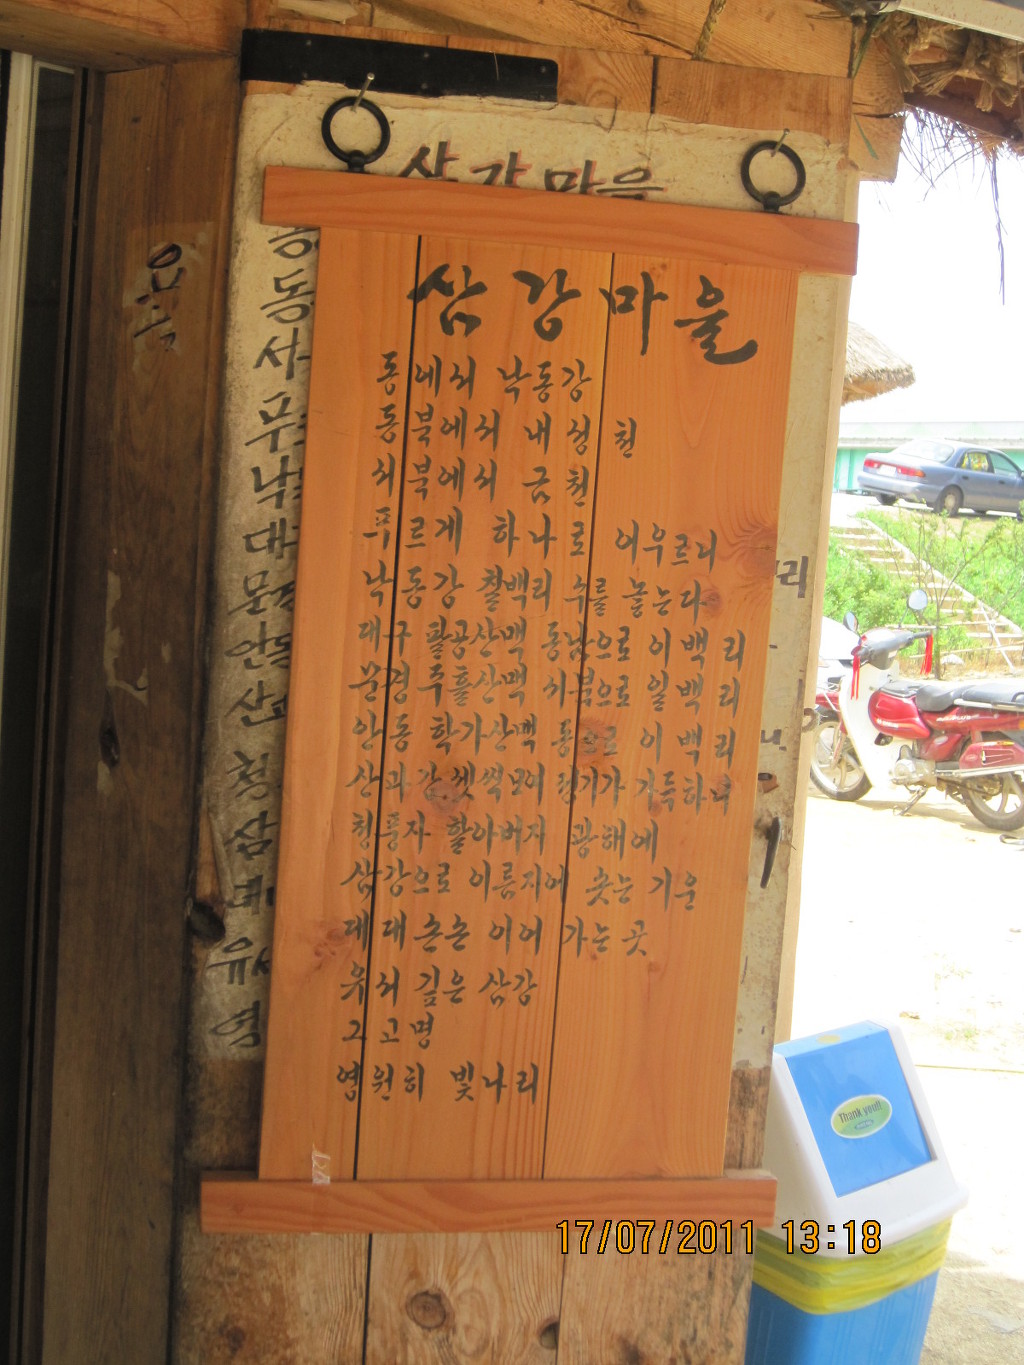 삼강마을
삼강마을
동에서 낙동강
동북에서 내성천
서북에서 금천
푸르게 하나로 어우르니
낙동강 칠백리 수를 놓는다
대구 팔공산맥 동남으로 이백리
문경 주흘산맥 서북으로 일백리
안동 학가산맥 동으로 이백리
산과강 셋씩모여 정기가 가득하니
청풍자 할아버지 광해에
삼강으로 이름지에 솟는 기운
대대손손 이어 가는곳
유서 깊은 삼강
그 고명
영원히 빛나리
동
사
푸
낙
대
문
안동
산
청
삼
대
유서
영
리
Thank you!!
17/07/2011 13:18